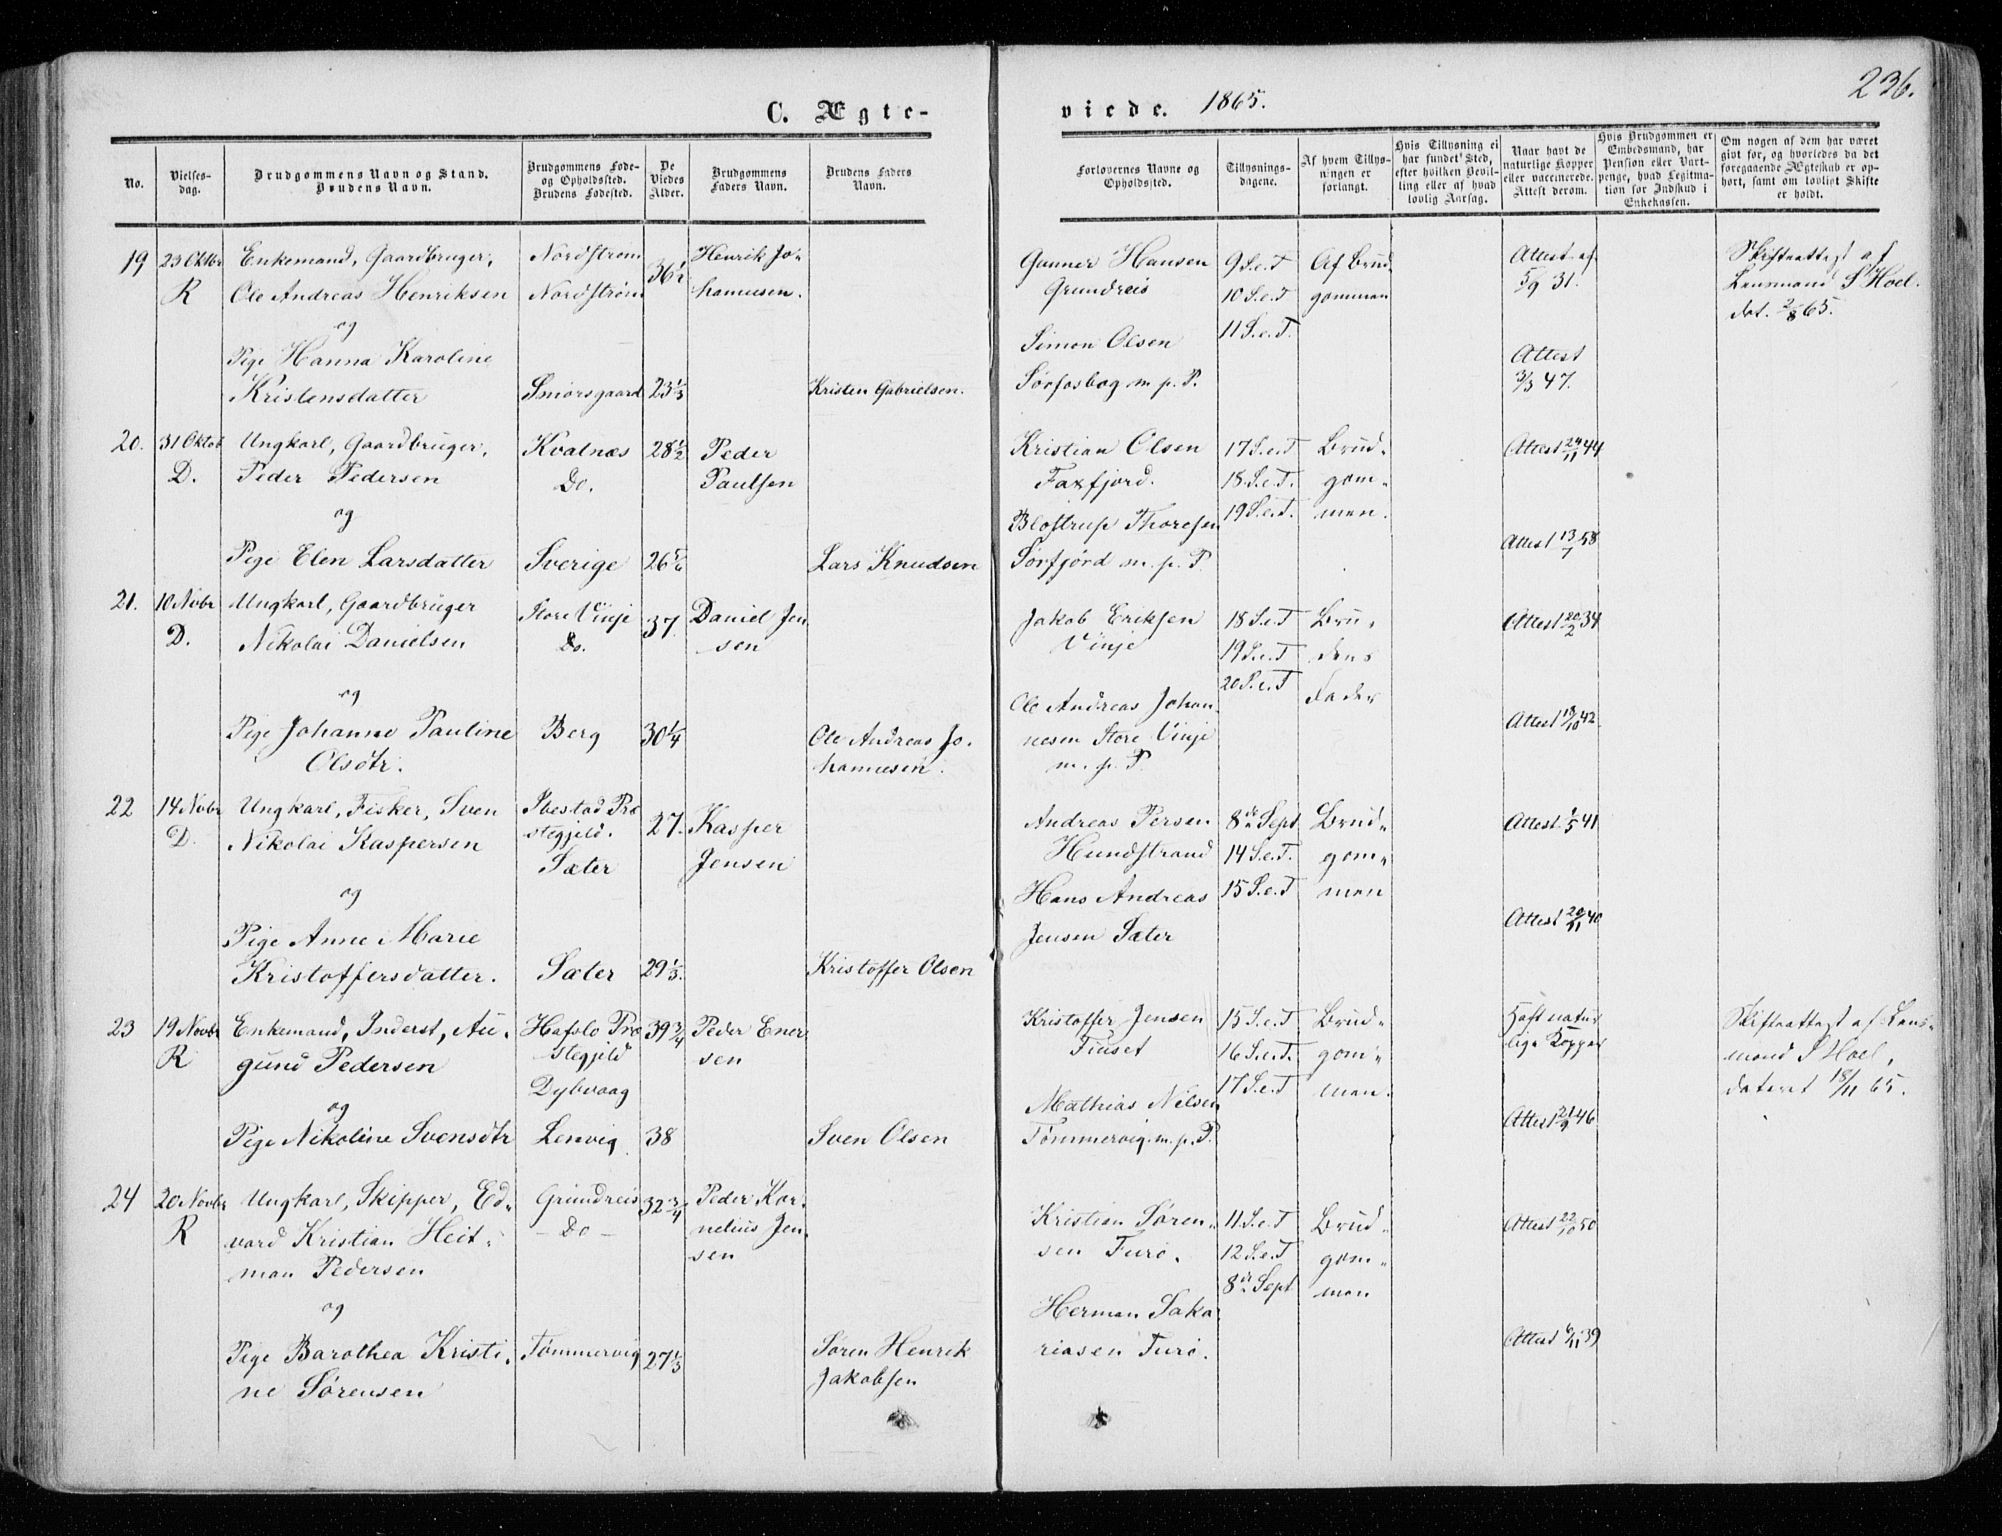 236.
C. Ægte-
viede. 1865.
No.
Vielses-
dag.
Brudgommens Navn og Stand.
Brudens Navn.
Brudgommens Føde-
og Opholdssted.
Brudens Fødested.
De
Viedes
Alder.
Brudgommens
Faders Navn.
Brudens Faders
Navn.
Forlovernes Navne og
Opholdssted.
Tillysnings-
dagene.
Af hvem Tillys-
ningen er
forlangt.
Hvis Tillysning ei
har fundet Sted,
efter hvilken Bevil-
ling eller af hvad
lovlig Aarsag.
Naar havt de
naturlige Kopper
eller vaccinerede.
Attest derom.
Hvis Brudgommen er
Embedsmand, har
Pension eller Vart-
penge, hvad Legitima-
tion for Indskud i
Enkekassen.
Om nogen af dem har været
gift før, og hvorledes da det
foregaaende Ægteskab er op-
hørt, samt om lovligt Skifte
er holdt.
19
23 Oktbr
R
Enkemand, Gaardbruger,
Ole Andreas Henriksen
og
Pige Hanna Karoline
Kristensdatter
Nordstrøm
Nordstrøm
Smørsgaard
36½
23⅓
Henrik Jo-
hannesen.
Kristen Gabrielsen.
Gunner Hansen
Grundreis
Simon Olsen
Sørfosbog m. p. P.
9 S.e.T
10 S.e.T
11 S.e.T.
Af Brud-
gommen
Attest af
5/9 31.
Attest
3/3 47.
Skifteattest af
Lensmand S Hoel.
dat. 2/8 65.
20.
31 Oktob
D.
Ungkarl, Gaardbruger,
Peder Pedersen
og
Pige Elen Larsdatter
Kvalnæs
Do.
Sverige
28½
26 5/6
Peder
Paulsen
Lars Knudsen
Kristian Olsen
Faxfjord.
Blostrup Thoresen
Sørfjord m. p. P.
17 S.e.T
18 S.e.T.
19 S.e.T.
Brud-
gom-
men.
Attest 24/11 44
Attest 13/7 58
21.
10 Novbr
D.
Ungkarl, Gaardbruger
Nikolai Danielsen
og
Pige Johanne Pauline
Olsdtr.
Store Vinje
Do.
Berg
37.
30¼
Daniel Jen
sen
Ole Andreas Jo-
hannesen.
Jakob Eriksen
Vinje
Ole Andreas Johan-
nesen Store Vinje
m. p. P.
18 S.e.T
19 S.e.T
20 S.e.T
Bru-
dens
Fader
Attest 20/2 34
Attest 18/10 42
22
14 Novbr
D.
Ungkarl, Fisker, Sven
Nikolai Kaspersen
og
Pige Anne Marie
Kristoffersdatter.
Ibestad Præ
stegjeld.
Sæter
Sæter
27.
29⅓.
Kasper
Jensen
Kristoffer Olsen
Andreas Persen
Hundstrand
Hans Andreas
Jensen Sæter
8de Sept
14 S.e.T.
15 S.e.T
Brud-
gom-
men
Attest 1/5 41
Attest 20/11 40
23
19 Novbr
R
Enkemand, Inderst, Au-
gund Pedersen
og
Pige Nikoline Svensdtr
Hafslo Præ
stegjeld
Dybvaag
Lenvig
39¾
38
Peder Ener
sen
Sven Olsen
Kristoffer Jensen
Finset
Mathias Nilsen
Tømmervig. m. p. P.
15 S.e.T
16 S.e.T.
17 S.e.T
Brud-
gom-
men.
Haft natur
lige Kopper
Attest 21/9 46
Skifteattest af Lens-
mand S Hoel,
dateret 18/11 65.
24
20 Novbr
R
Ungkarl, Skipper, Ed-
vard Kristian Heit-
man Pedersen
og
Pige Barothea Kristi-
ne Sørensen
Grundreis
- Do -
Tømmervig
32¾
27⅓
Peder Kor-
nelius Jen-
sen
Søren Henrik
Jakobsen
Kristian Søren-
sen Turø.
Herman Saka
riasen Turø.
11 S.e.T
12 S.e.T
8de Sept
Brud-
gom-
men
Attest 22/10 50
Attest 6/11 39